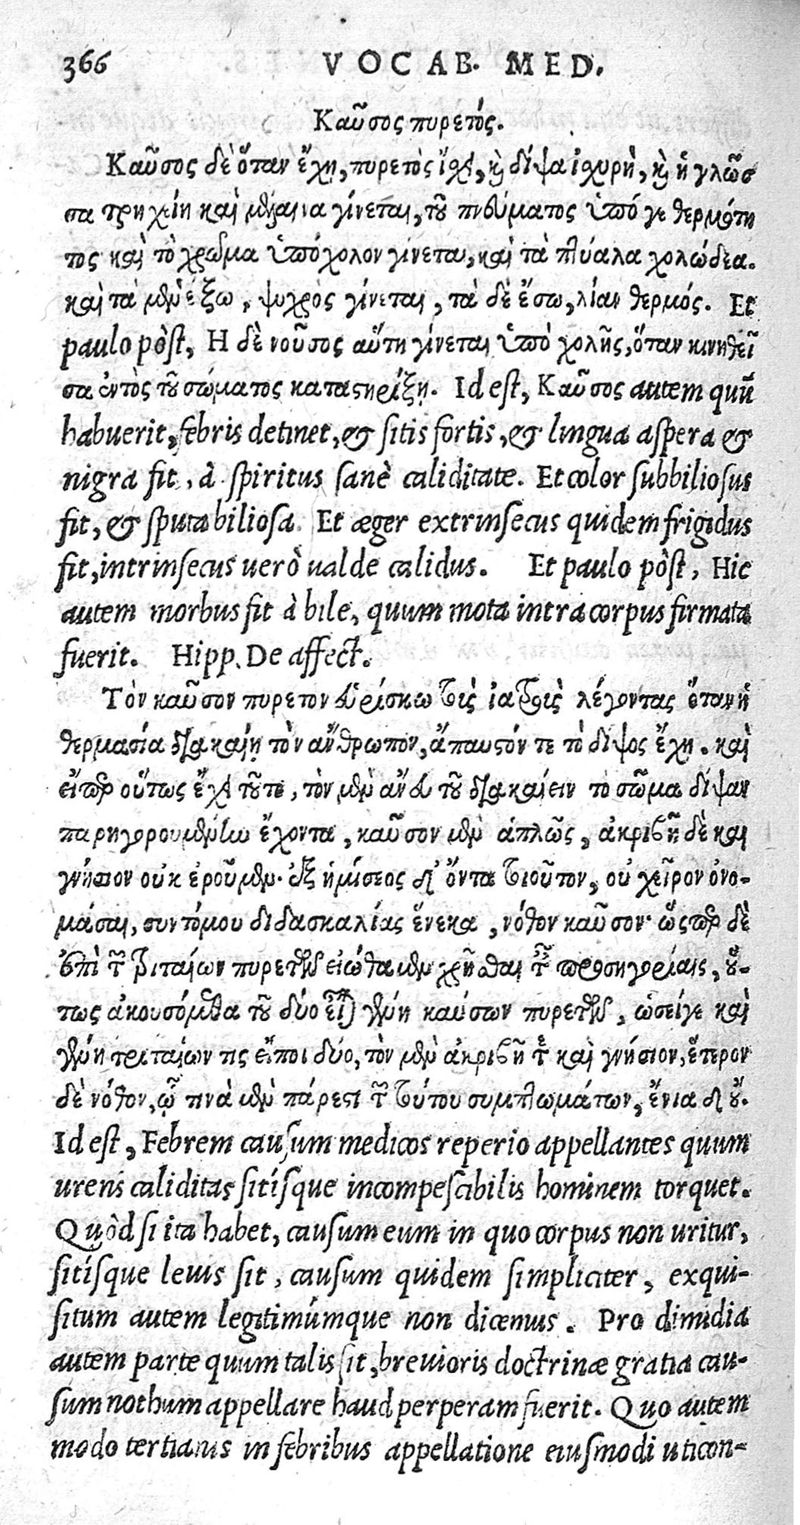 366 VOCAB. MED.
Καῦσος πυρετός.
Καῦσος δὲ ὅταν ἔχῃ, πυρετὸς ἴσχει, καὶ δίψα ἰσχυρὴ, καὶ ἡ γλῶσ
σα τρηχείη καὶ μέλαινα γίνεται, τοῦ πνεύματος ὑπό γε θερμότη
τος καὶ τὸ χρῶμα ὑπόχολον γίνεται, καὶ τὰ πτύαλα χολώδεα.
καὶ τὰ μὲν ἔξω, ψυχρὸς γίνεται, τὰ δὲ ἔσω, λίαν θερμός. Et
paulo pòst, Η δὲ νοῦσος αὕτη γίνεται ὑπὸ χολῆς, ὅταν κινηθεῖ
σα ἐντὸς τοῦ σώματος καταστηρίξῃ. Id est, Καῦσος autem quũ
habuerit, febris detinet, & sitis fortis, & lingua aspera &
nigra fit, à spiritus sanè caliditate. Et color subbiliosus
fit, & sputa biliosa. Et æger extrinsecus quidem frigidus
fit, intrinsecus uerò ualde calidus. Et paulo pòst, Hic
autem morbus fit à bile, quum mota intra corpus firmata
fuerit. Hipp. De affect.
Τὸν καῦσον πυρετὸν εὑρίσκω τοὺς ἰατροὺς λέγοντας ὅταν ἡ
θερμασία διακαίῃ τὸν ἄνθρωπον, ἄπαυστόν τε τὸ δίψος ἔχῃ. καὶ
εἴπερ οὕτως ἔχει τοῦτο, τὸν μὲν ἄνευ τοῦ διακαίειν τὸ σῶμα δίψαν
παρηγορουμένην ἔχοντα, καῦσον μὲν ἁπλῶς, ἀκριβῆ δὲ καὶ
γνήσιον οὐκ ἐροῦμεν. ἐξ ἡμίσεος δ' ὄντα τοιοῦτον, οὐ χεῖρον ὀνο-
μάσαι, συντόμου διδασκαλίας ἕνεκα, νόθον καῦσον. ὥσπερ δὲ
ἐπὶ τῶν τριταίων πυρετῶν εἰώθαμεν χρῆσθαι ταῖς προσηγορίαις, οὕ-
τως ἀκουσόμεθα τοῦ δύο εἶναι γένη καύσων πυρετῶν, ὡσείγε καὶ
γένη τριταίων τις εἴποι δύο, τὸν μὲν ἀκριβῆ τε καὶ γνήσιον, ἕτερον
δὲ νόθον, ᾧ τινὰ μὲν πάρεστι τῶν τούτου συμπτωμάτων, ἔνια δ' οὔ.
Id est, Febrem causum medicos reperio appellantes quum
urens caliditas sitísque incompescibilis hominem torquet.
Quòd si ita habet, causum eum in quo corpus non uritur,
sitísque leuis sit, causum quidem simpliciter, exqui-
situm autem legitimúmque non dicemus. Pro dimidia
autem parte quum talis sit, breuioris doctrinæ gratia cau-
sum nothum appellare haud perperam fuerit. Quo autem
modo tertianis in febribus appellatione eiusmodi uti con-